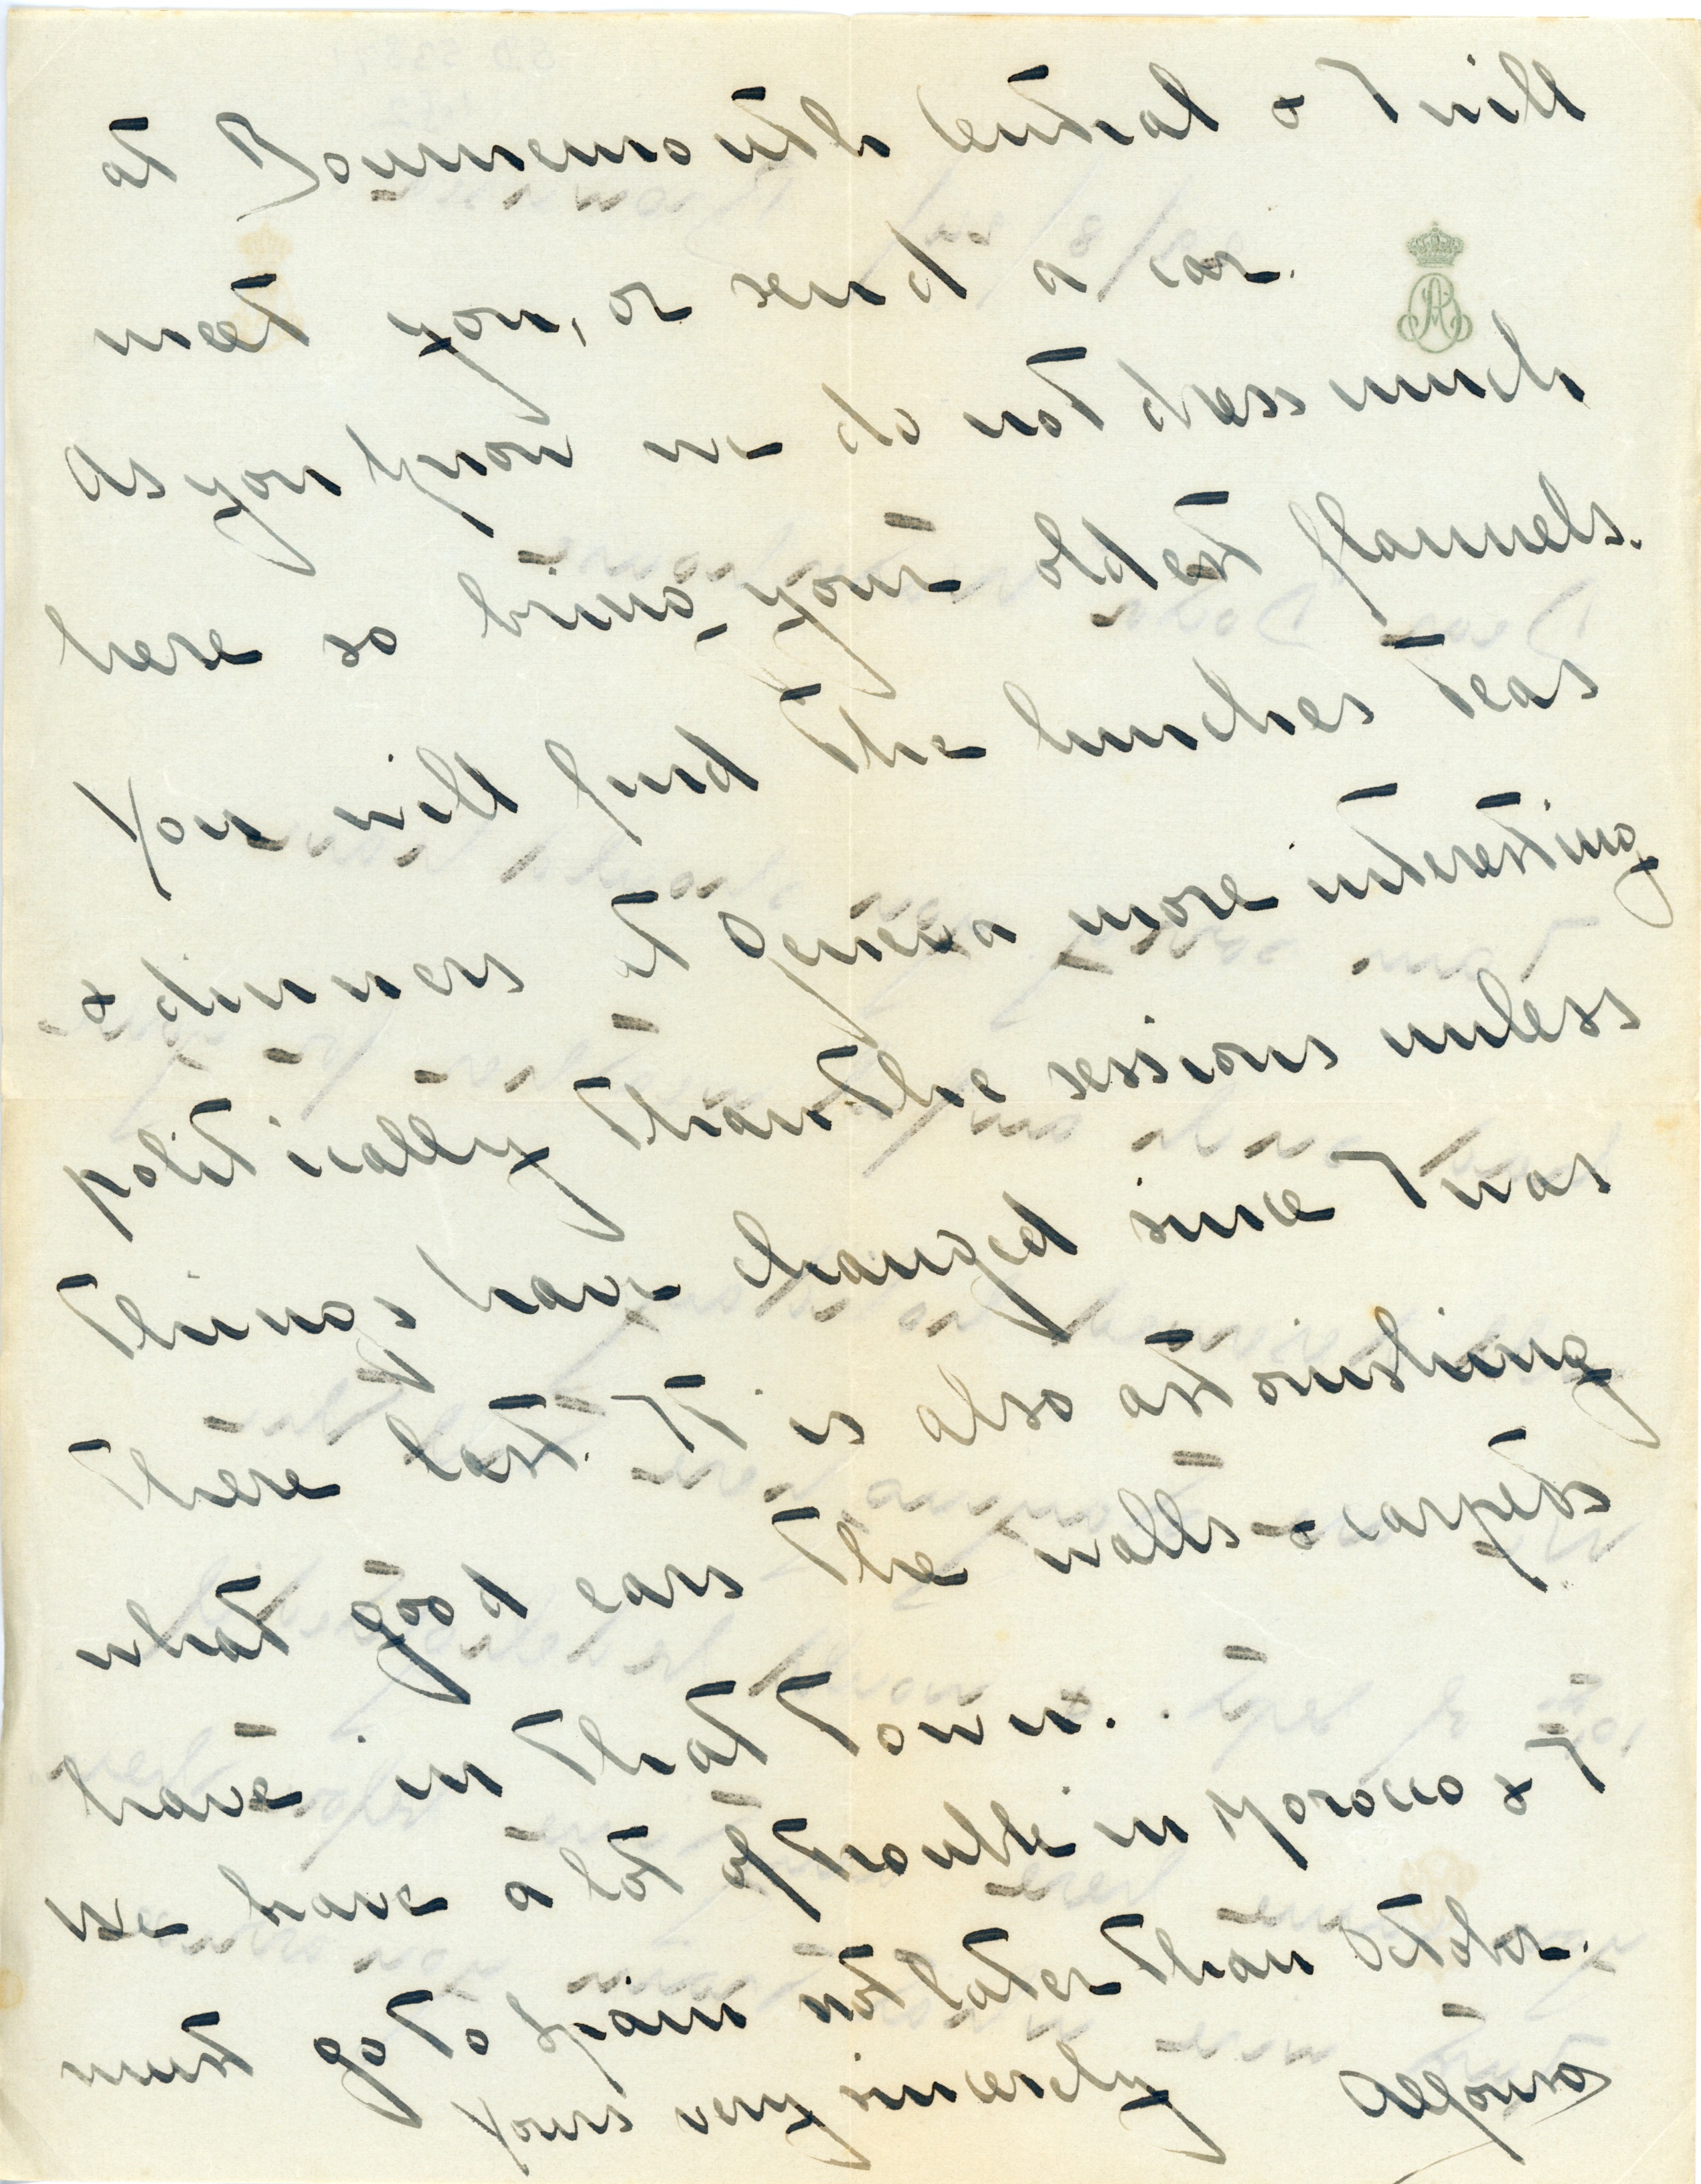 at Bournemouth Central & I will
meet you, or send a car.
As you know we do not dress much
here so bring your oldest flannels.
You will find the lunches teas
& dinners at Geneva more interesting
politically than the sessions unless
things have changed since I was
there last. It is also astonishing
what good ears the walls & carpets
have in that town.
We have a lot of trouble in Morocco & I
must go to Spain not later than October.
Yours very sincerely Alfonso